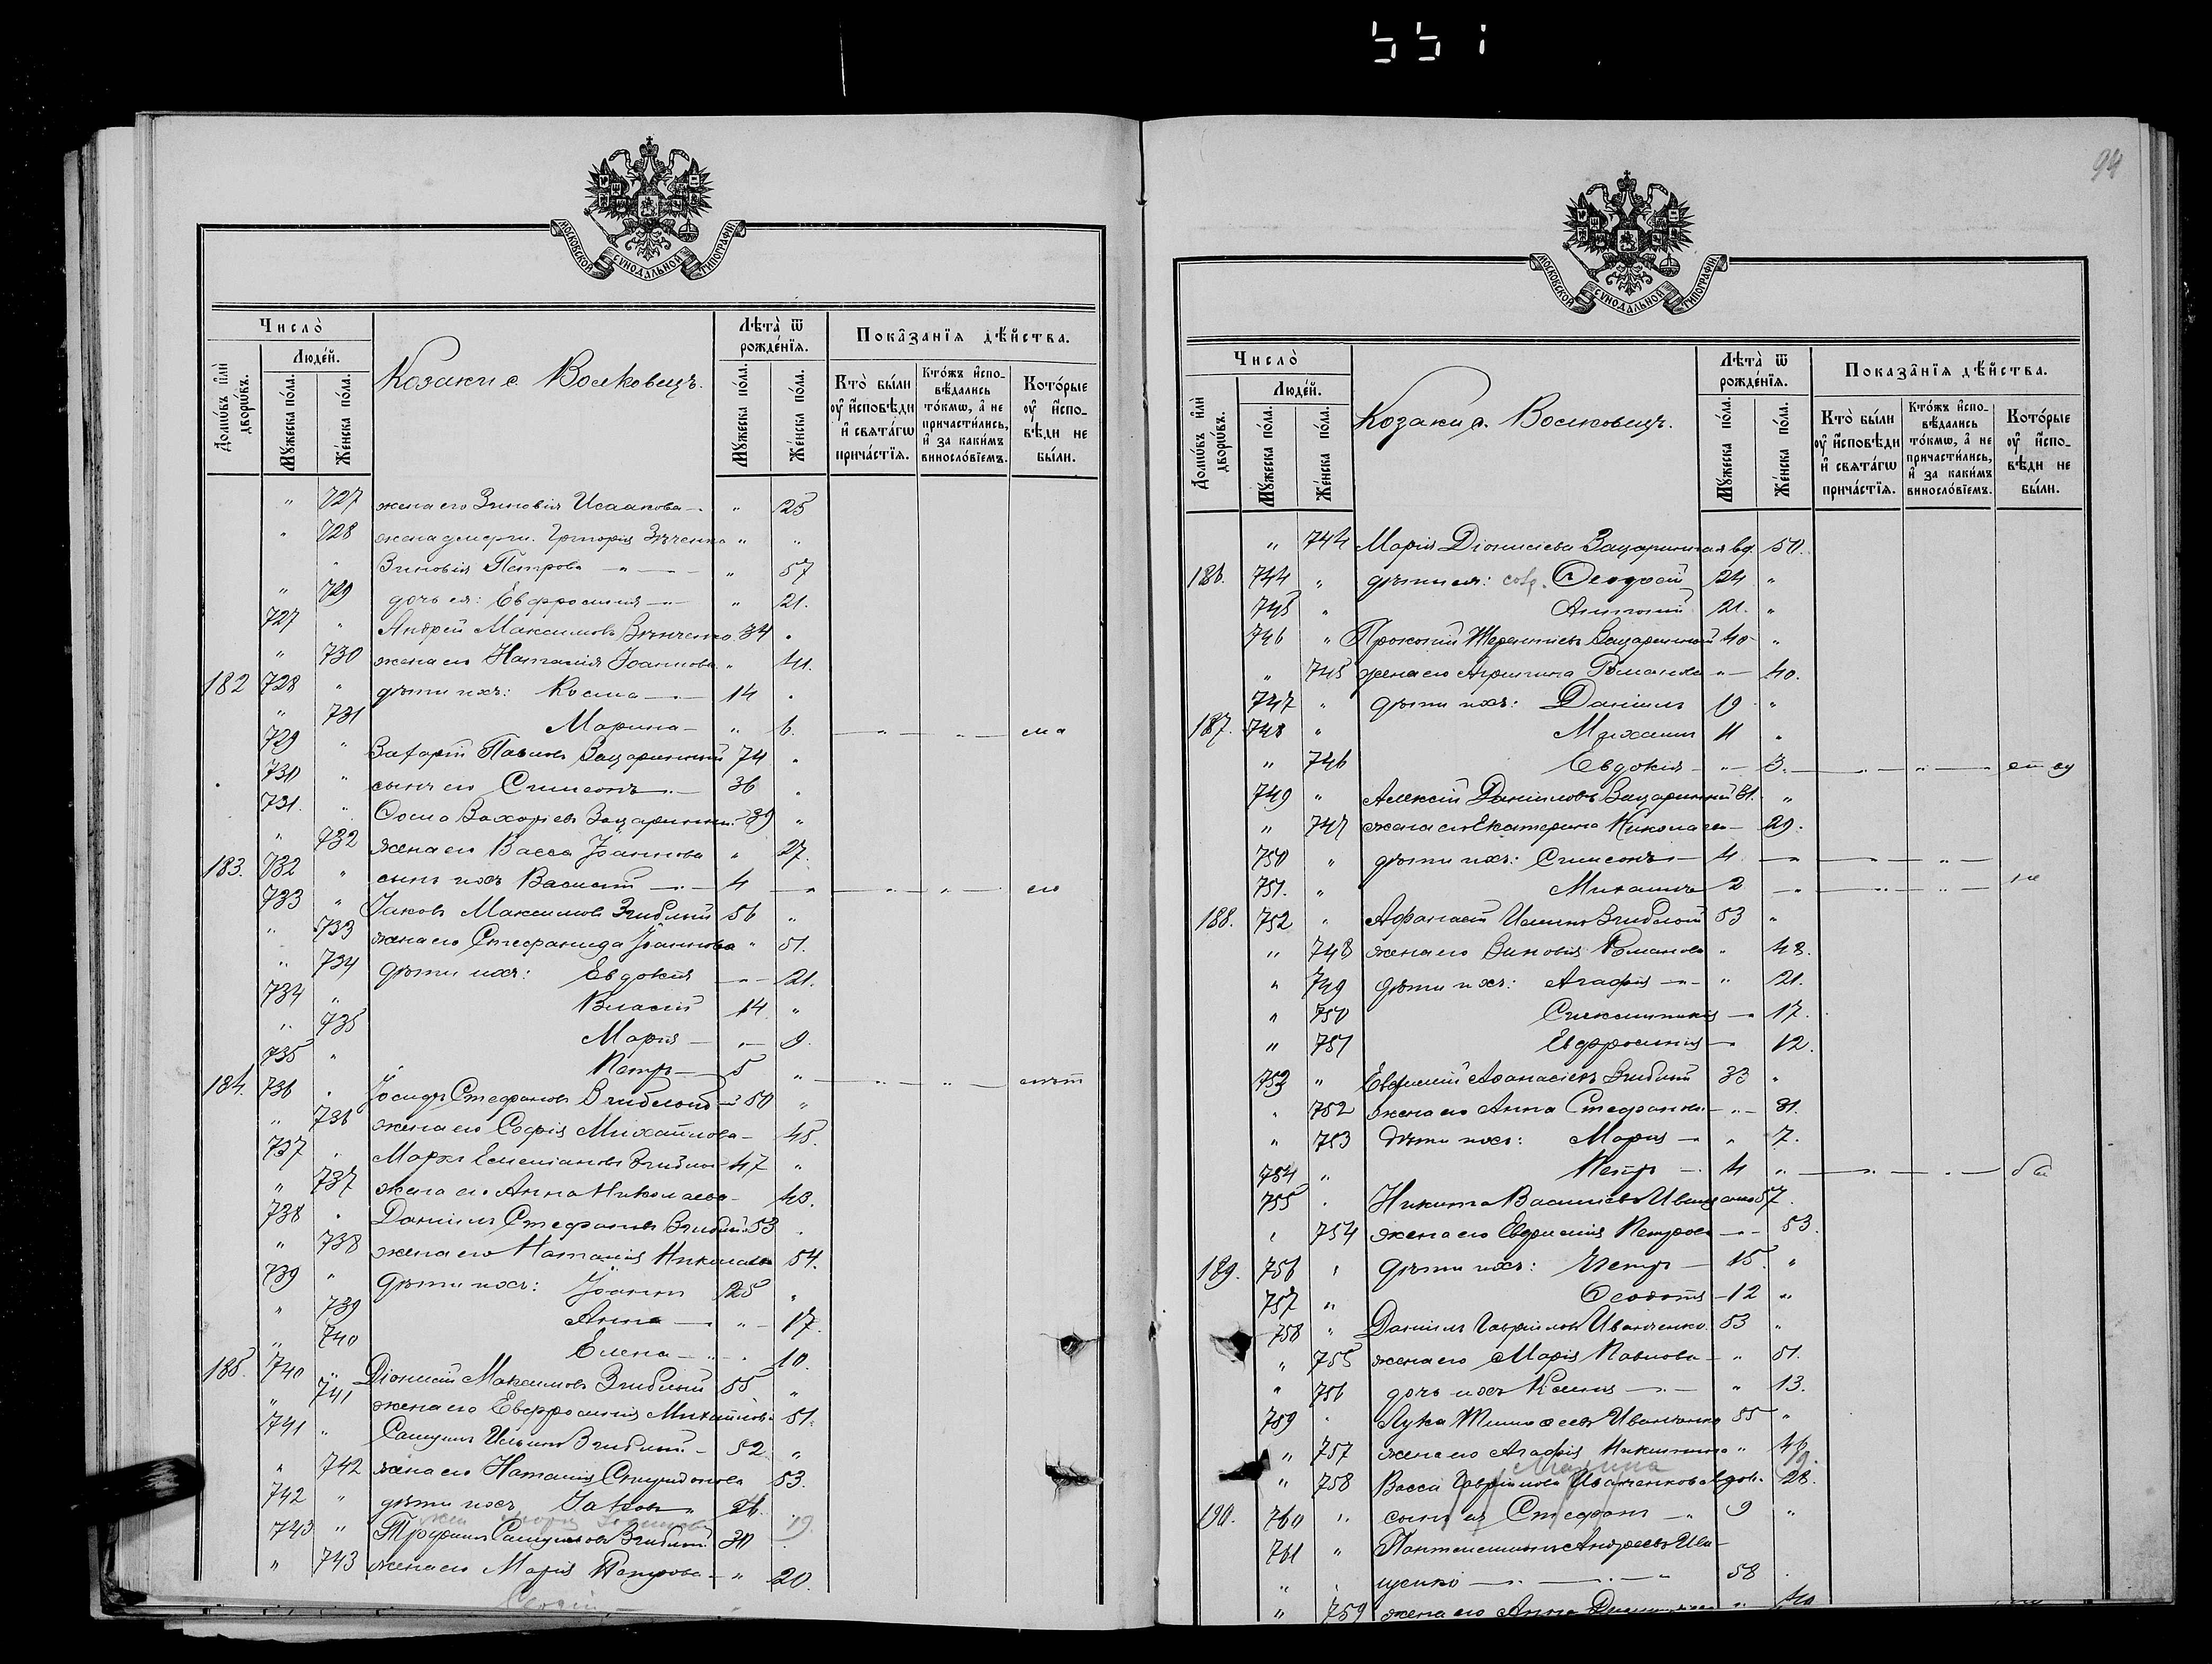 551
94
МОСКОВСКОЙ СѴНОДАЛЬНОЙ ТИПОГРАФІИ
Число̀
Домѡ́въ и҆лѝ дворѡ́въ.
Люде́й.
Мꙋ́жеска по́ла.
Же́нска по́ла.
Козаки с. Волковецъ.
Лѣта̀ ѿ рожде́нїѧ.
Мꙋ́жеска по́ла.
Же́нска по́ла.
Показа̂нїѧ дѣ́йства.
Кто̀ бы́ли ᲂу҆ и҆́сповѣди и҆ свѧта́гѡ прича́стїѧ.
Кто́жъ и҆сповѣ́дались то́кмѡ, а҆ не причасти́лись, и҆ за каки́мъ виносло́вїемъ.
Кото́рые ᲂу҆ и҆́сповѣди не бы́ли.
" 727 жена его Зиновія Исаакова " 25
" 728 жена умерш. Григорія " "
Зиновія Петрова " 57
" 729 дочь ея: Евфросинія " 21.
727 " Андрей Максимовъ 34 "
" 730 жена его Наталія Іоаннова "
182 728 " дѣти ихъ: Косма 14 "
" 731 Марина " 6. " " ма
729 " Захарій Павловъ Зацаринный 74 "
730 " сынъ его Симеонъ 36 "
731. " Ѳома Захаріевъ Зацаринный 39 "
" 732 жена его Васса Іоаннова " 27.
183. 732 " сынъ ихъ Василій 4 " " " его
733 " Іаковъ Максимовъ Згиблый 56 "
" 733 жена его Стефанида Іоаннова " 51.
" 734 дѣти ихъ: Евдокія " 21.
734 " Власій 14 "
" 735 Марія " 9.
735 " Петръ 5 " " "
184. 736 " Іосифъ Стефановъ Згиблый 50 "
" 736 жена его Софія Михайлова 45.
737 " Маркъ Емеліановъ 47 "
" 737 жена его Анна Николаева 43.
738 " Даніилъ Стефановъ Згиблый 53 "
" 738 жена его Наталія Николаева 54.
739 " дѣти ихъ: Іоаннъ 25 "
" 739 Анна " 17.
" 740 Елена " 10.
185. 740 " Діонисій Максимовъ Згиблый 55 "
" 741 жена его Евфросинія Михайлова 51.
741 " Самуилъ Ильинъ Згиблый 52 "
" 742 жена его Наталія Спиридонова 53.
742 " дѣти ихъ Іаковъ 26.
19.
743 " Трофимъ Самуиловъ Згиблый 30
" 743 жена его Марія Петрова " 20.
МОСКОВСКОЙ СѴНОДАЛЬНОЙ ТИПОГРАФІИ
Число̀
Домѡ́въ и҆лѝ дворѡ́въ.
Люде́й.
Мꙋ́жеска по́ла.
Же́нска по́ла.
Козаки с. Волковецъ.
Лѣта̀ ѿ рожде́нїѧ.
Мꙋ́жеска по́ла.
Же́нска по́ла.
Показа̂нїѧ дѣ́йства.
Кто̀ бы́ли ᲂу҆ и҆́сповѣди и҆ свѧта́гѡ прича́стїѧ.
Кто́жъ и҆сповѣ́дались то́кмѡ, а҆ не причасти́лись, и҆ за каки́мъ виносло́вїемъ.
Кото́рые ᲂу҆ и҆́сповѣди не бы́ли.
" 744 Марія Діонисіева Зацаринная вд. 50.
186. 744 " дѣти ея: Ѳеодосій 24 "
745 " Антоній 21. "
746 " Прокопій Терентіевъ Зацаринный 40 "
" 745 жена его Агрипина Романова " 40.
747 " дѣти ихъ: Даніилъ 19 "
187. 748 " Михаилъ 11 "
" 746 Евдокія " 3. " "
749 " Алексій Даніиловъ Зацаринный 31. "
" 747 жена его Екатерина Николаева 29.
750 " дѣти ихъ: Симеонъ 4 " "
751. " Михаилъ 2 " " "
188. 752 " Афанасій Ильинъ Згиблый 53 "
" 748 жена его Зиновія Романова " 48.
" 749 дѣти ихъ: Агафія " 21.
" 750 17.
" 751 Евфросинія 12.
753 " Евфимій Афанасіевъ Згиблый 33 "
" 752 жена его Анна Стефанова " 31.
" 753 дѣти ихъ: Марія " 7.
754 " Петръ 4 " " "
755 " Никита Василіевъ 57.
" 754 жена его Евфимія Петрова 53.
189. 756 " дѣти ихъ: Петръ 15. "
757 " Ѳеодотъ 12 "
758 " Даніилъ Гавріиловъ Иванченко 53 "
" 755 жена его Марія Павлова " 51.
" 756 дочь ихъ Ксенія " 13.
759 " Лука Тимоѳеевъ Иванченко 55 "
" 757 жена его Агафія Никитина " 46
Марина 19.
" 758 Васса Гавріилова Иванченкова вдов. 28.
190. 760 " сынъ ея Стефанъ 9 "
761 " Пантелеимонъ Андреевъ Ива-
" " щенко 58
" 759 жена его Анна "